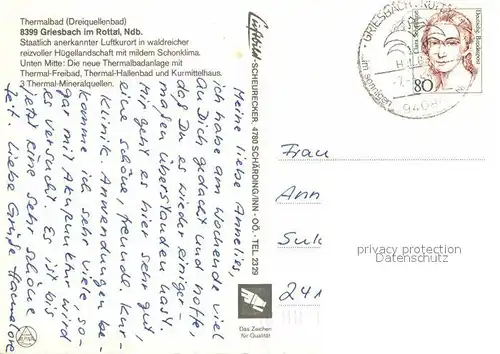 Thermalbad (Dreiquellenbad)
8399 Griesbach im Rottal, Ndb.
Staatlich anerkannter Luftkurort in waldreicher
reizvoller Hügellandschaft mit mildem Schonklima.
Unten Mitte: Die neue Thermalbadanlage mit
Thermal-Freibad, Thermal-Hallenbad und Kurmittelhaus.
3 Thermal-Mineralquellen.
Meine liebe Annelies,
ich habe am Wochende viel
an Dich gedacht und hoffe,
daß Du es wieder einiger-
maßen überstanden hast.
Mir geht es hier sehr gut,
eine schöne, freundl. Kur-
Klinik. Anwendungen be-
komme ich sehr viele, so-
gar mit Akupunktur wird
es versucht. Es ist bis
jetzt eine sehr schöne
Zeit. Liebe Grüße Hannelore
Luftbild-SCHEURECKER, 4780 SCHÄRDING/INN - OÖ. - TEL. 2329
Das Zeichen
für Qualität
GRIESBACH i. ROTTAL
94086
80
Deutsche Bundespost
Clara Schumann
Frau
Ann
Suk
241
privacy protection
Datenschutz